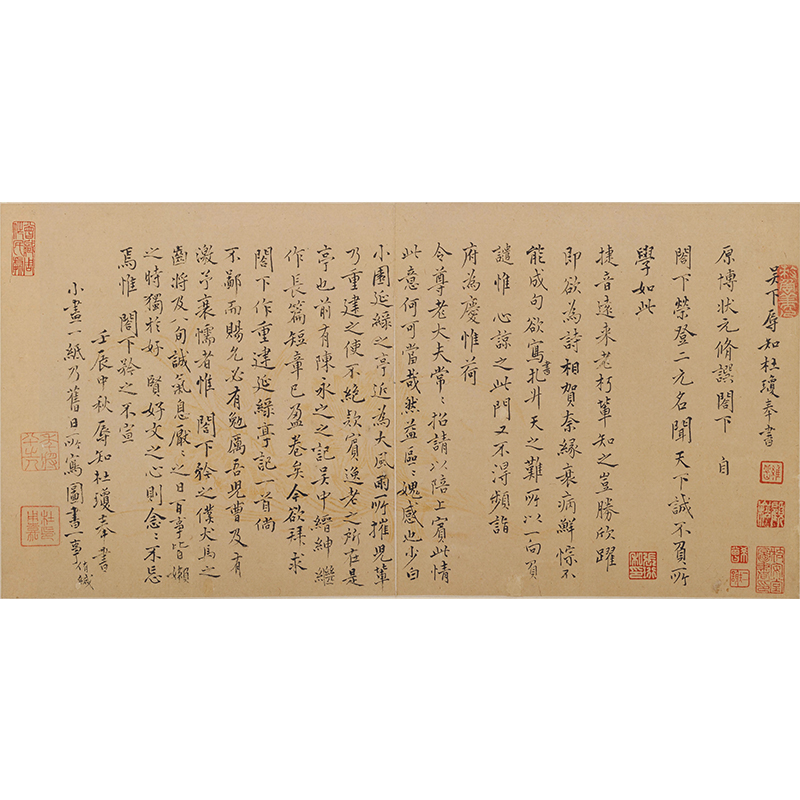 吳下辱知杜瓊奉書
原博狀元脩譔閣下 自
閣下榮登二元名聞天下誠不負所
學如此
捷音遠來老朽輩知之豈勝欣躍
即欲為詩相賀奈緣衰病鮮悰不
能成句欲寫書扎廾天之難所以一向負
譴惟心諒之此門又不得頻詣
府為慶惟荷
令尊老大夫常〻招請以陪上賓此情
此意何可當哉然益區〻媿感也少白
小園延綠之亭近為大風雨所摧兒輩
乃重建之使不絕欵賓逸老之所在是
亭也前有陳永之之記吳中縉紳繼
作長篇短章已盈卷矣今欲拜求
閣下作重建延綠亭記一首倘
不鄙而賜允必有勉厲吾兒曹及有
激予衰懦者惟 閣下矜之僕犬馬之
齒將及八旬誠氣息厭〻之日百事皆嬾
之時獨於好 賢好文之心則念〻不忘
焉惟 閣下矜之不宣
壬辰中秋辱知杜瓊奉書
小畫一紙乃舊日所寫圖書一事伯緘